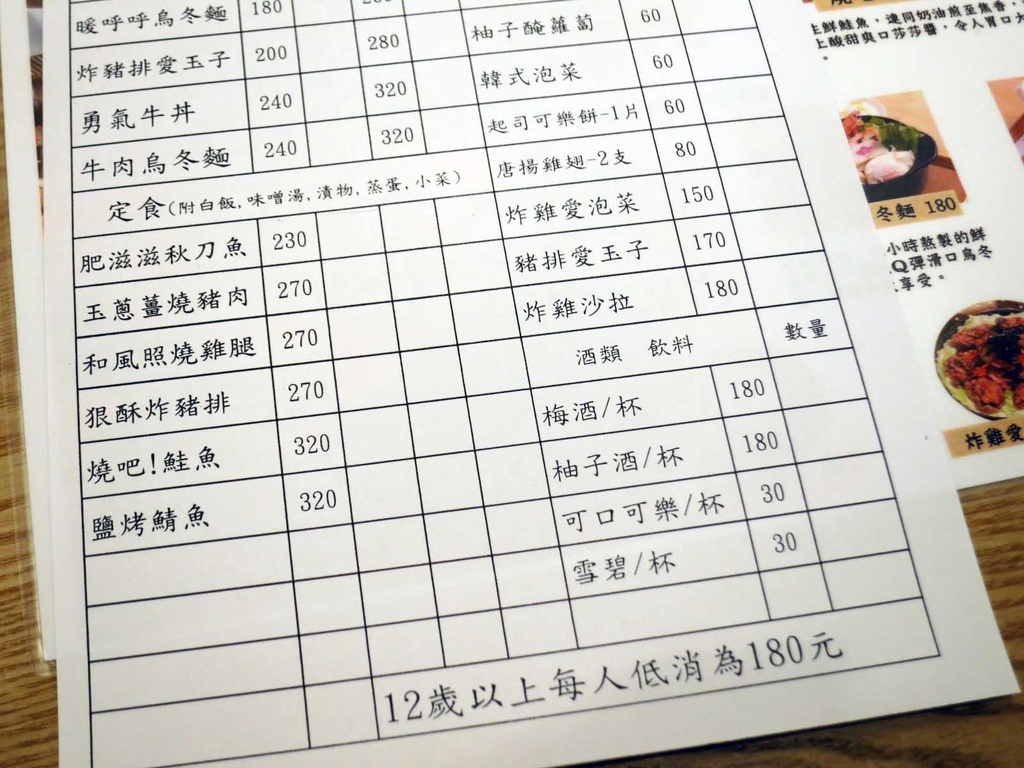 暖呼呼烏冬麵 180
炸豬排愛玉子 200 280
勇氣牛丼 240 320
牛肉烏冬麵 240 320
定食(附白飯,味噌湯,漬物,蒸蛋,小菜)
肥滋滋秋刀魚 230
玉蔥薑燒豬肉 270
和風照燒雞腿 270
狠酥炸豬排 270
燒吧!鮭魚 320
鹽烤鯖魚 320
柚子醃蘿蔔 60
韓式泡菜 60
起司可樂餅-1片 60
唐揚雞翅-2支 80
炸雞愛泡菜 150
豬排愛玉子 170
炸雞沙拉 180
酒類 飲料 數量
梅酒/杯 180
柚子酒/杯 180
可口可樂/杯 30
雪碧/杯 30
12歲以上每人低消為180元
鮮鮭魚,連同奶油煎至焦香;
上酸甜爽口莎莎醬,令人胃口大
。
冬麵 180
小時熬製的鮮
Q彈滑口烏冬
享受。
炸雞愛